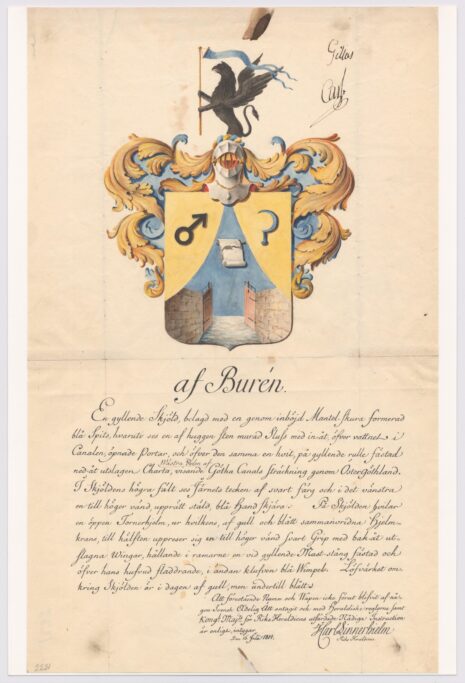 Gillas
Carl
af Burén.
En gyllende Skjöld, belagd med en genom inböjd Mantel-skura formerad
blå Spits, hvaruti ses en af huggen sten murad Sluss med in-åt, öfver vattnet i
Canalen öpnade Portar, och öfver den samma en hvit, på gyllende rulle fästad
ned-åt utslagen Charta, visande Götha Canals sträckning genom Östergöthland.
Westra delen af
I Skjöldens högra fält ses Järnets tecken af svart färg och i det vänstra
en till höger vänd, upprätt ståld, blå Handskjära. På Skjölden hvilar
en öppen Tornerhjelm, ur hvilkens, af gull och blått sammanvridna Hjelm-
krans, till hälften uppreser sig en till höger vänd svart Grip med bak-åt ut-
slagna Wingar, hållande i ramarne en vid gyllende Mast-stång fästad och
öfver hans hufvud fladdrande, i ändan klufven blå Wimpel. Löfvärket om-
kring Skjölden är i dagen af gull, men undertill blått.
Att förestående Namn och Wapen icke förut blifvit af nå-
gon Svensk Adelig Ätt antagit och med Heraldiske reglorne samt
Kongl. Majts för Riks Heraldicus utfärdade Nådiga Instruction
är enligt, intygar.
Den
Jonas Carl Linnerhielm
Riks Heraldicus.